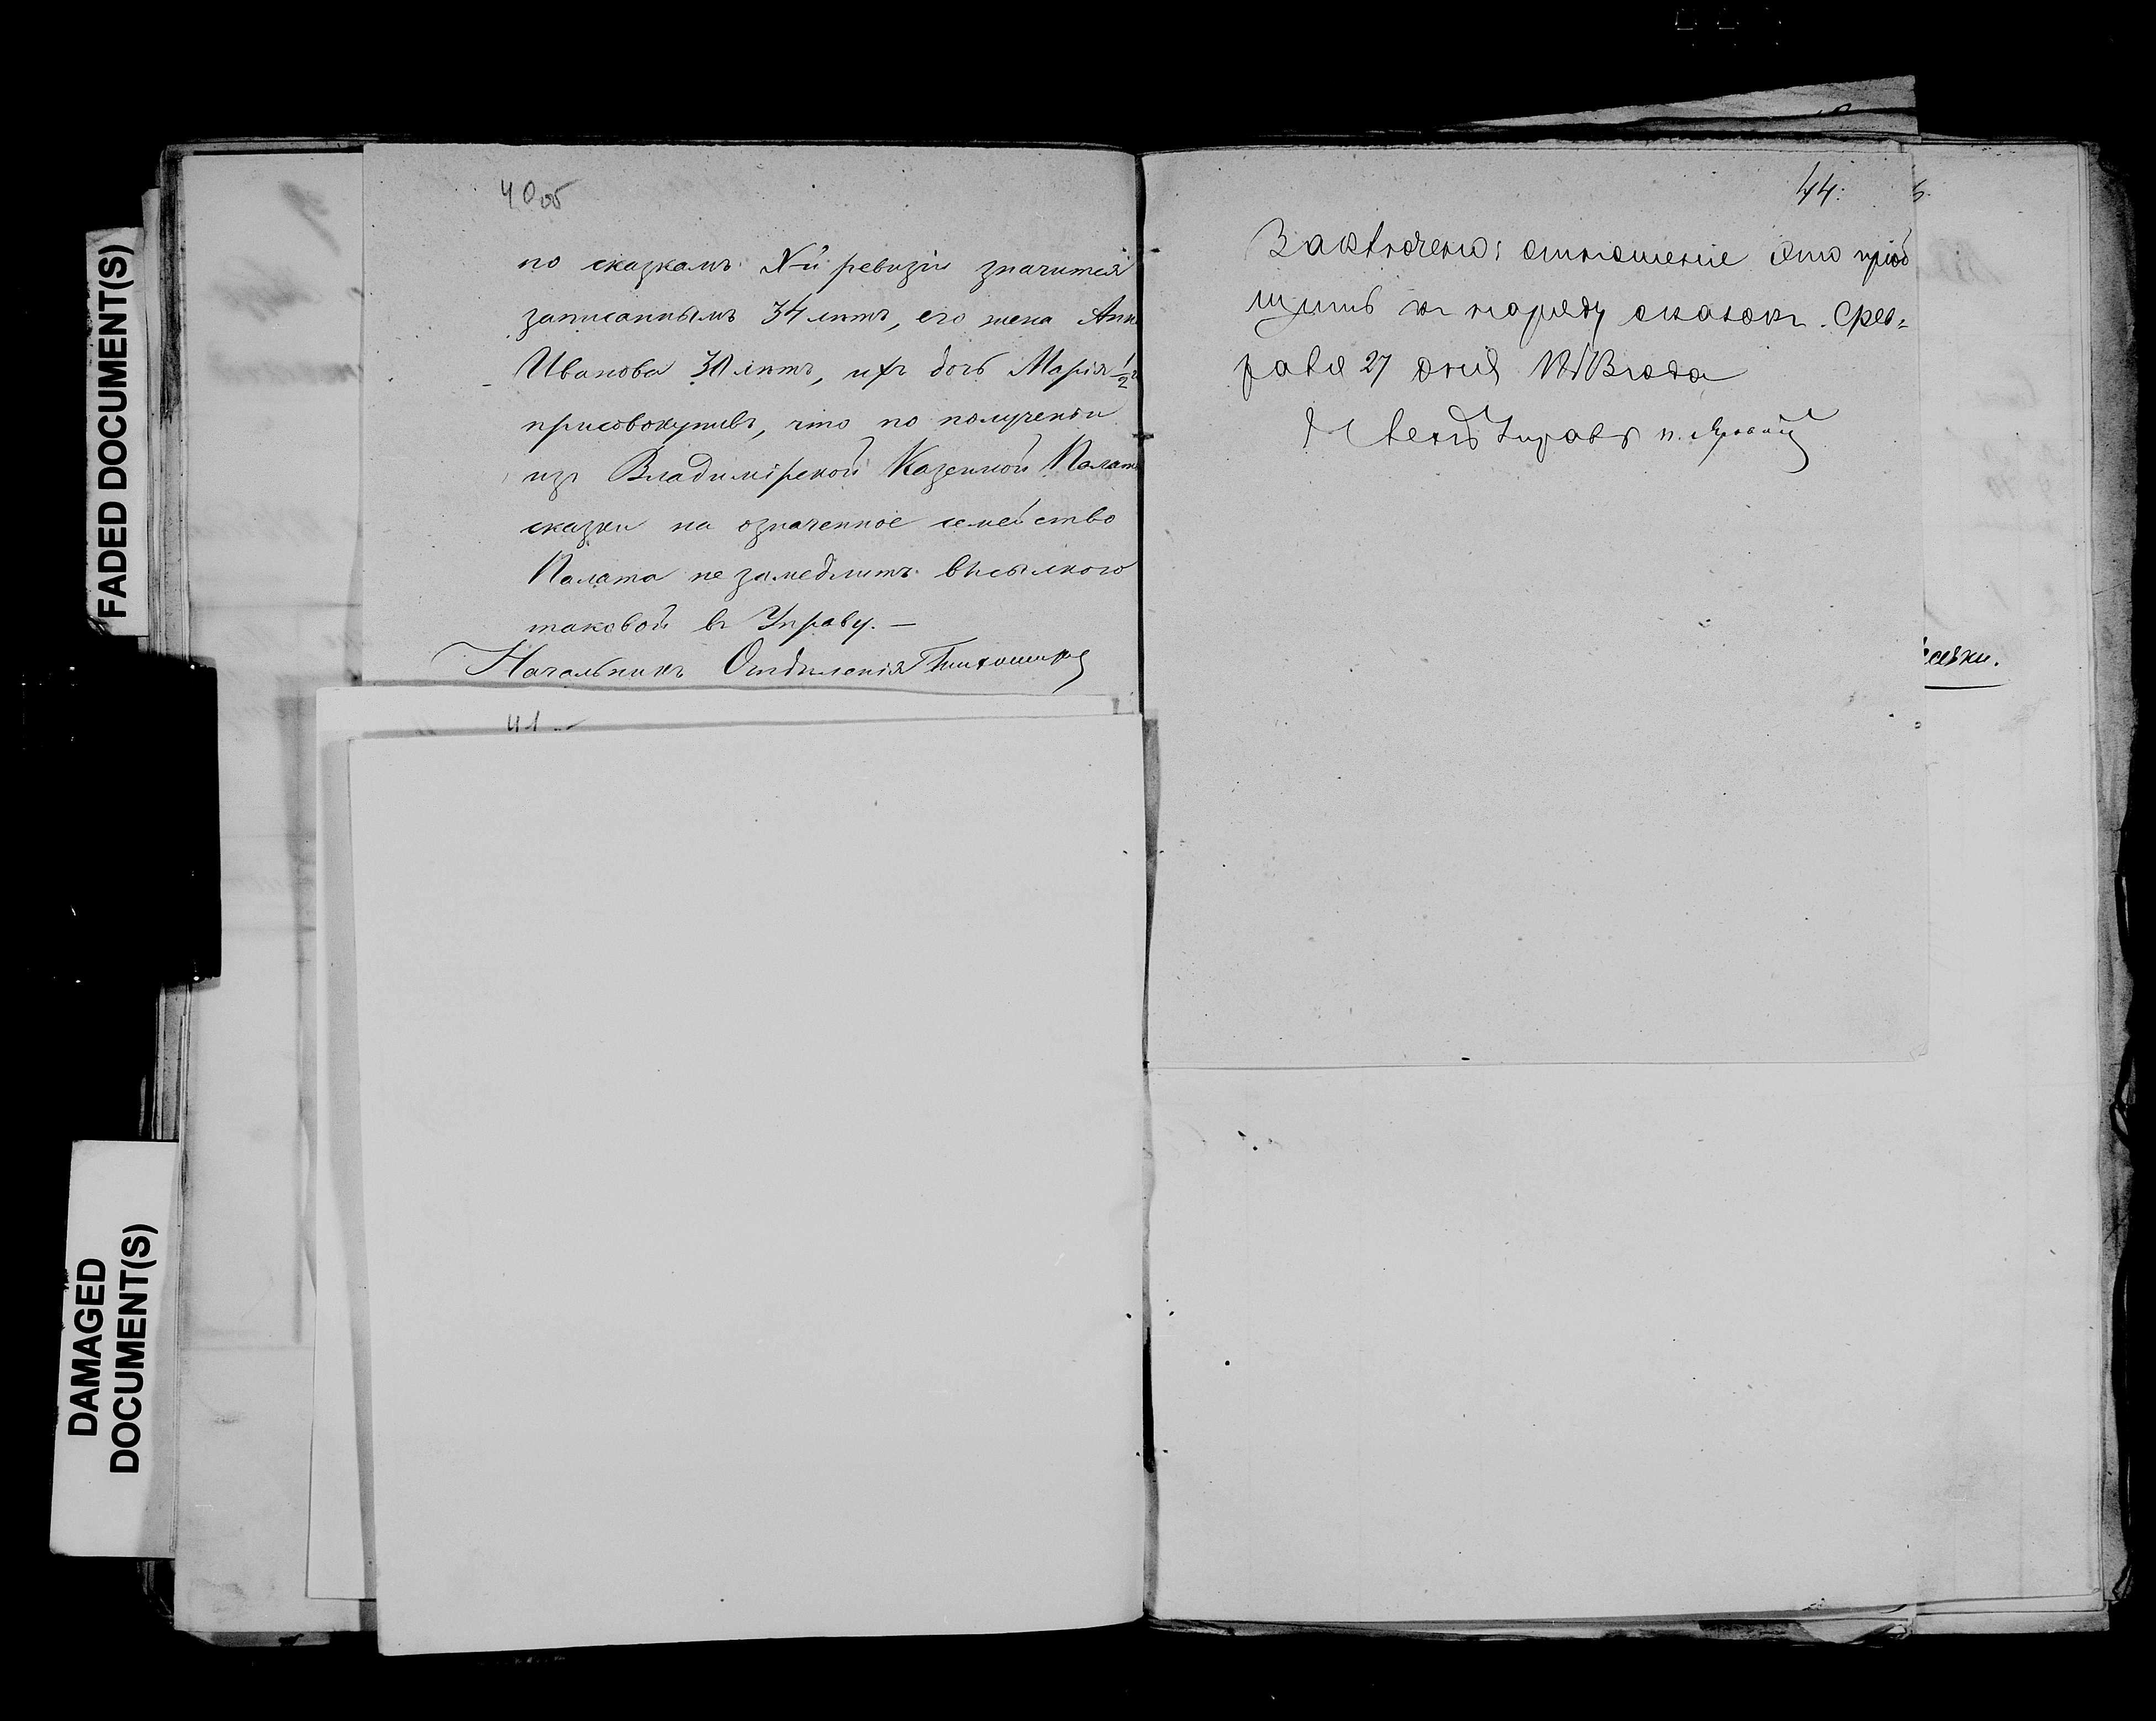 FADED DOCUMENT(S)
DAMAGED
DOCUMENT(S)
40об
по сказкамъ X-й ревизіи значится
записаннымъ 34 лѣтъ, его жена Анн
Иванова 30 лѣтъ, ихъ дочь Марія 1/2
присовокупивъ, что по полученіи
изъ Владимірской Казенной Палат
сказки на означенное семейство
Палата не замедлитъ высылкою
таковой въ Управу. —
Начальникъ Отдѣленія
41
44.
Заключено: отношеніе это пріоб
щить къ наряду сказокъ. Фев=
раля 27 дня года
Членъ Управы